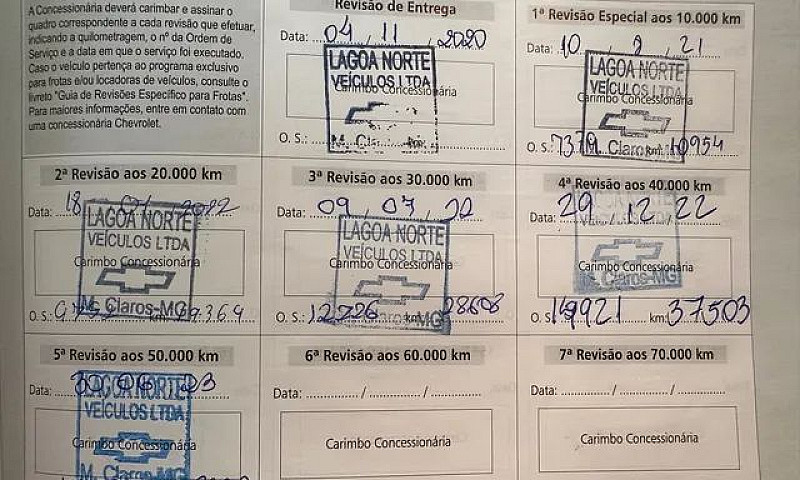 A Concessionária deverá carimbar e assinar o
quadro correspondente a cada revisão que efetuar,
indicando a quilometragem, o nº da Ordem de
Serviço e a data em que o serviço foi executado.
Caso o veículo pertença ao programa exclusivo
para frotas e/ou locadoras de veículos, consulte o
livreto "Guia de Revisões Específico para Frotas".
Para maiores informações, entre em contato com
uma concessionária Chevrolet.
Revisão de Entrega
Data: 04, 11, 2020
LAGOA NORTE
VEÍCULOS LTDA
Carimbo Concessionária
O. S.:
1ª Revisão Especial aos 10.000 km
Data: 10, 21
LAGOA NORTE
VEÍCULOS LTDA
Carimbo Concessionária
M. Claros-MG
O. S.: km: 10954
2ª Revisão aos 20.000 km
Data: 18
LAGOA NORTE
VEÍCULOS LTDA
Carimbo Concessionária
M. Claros-MG
O. S.: km:
3ª Revisão aos 30.000 km
Data: 09, 07, 22
LAGOA NORTE
VEÍCULOS LTDA
Carimbo Concessionária
M. Claros-MG
O. S.: 12226 km: 28608
4ª Revisão aos 40.000 km
Data: 29, 12, 22
Carimbo Concessionária
M. Claros-MG
O. S. km: 37503
5ª Revisão aos 50.000 km
Data: 23
LAGOA NORTE
VEÍCULOS LTDA
Carimbo Concessionária
M. Claros-MG
6ª Revisão aos 60.000 km
Data: ............../............../..............
Carimbo Concessionária
7ª Revisão aos 70.000 km
Data: ............../............../..............
Carimbo Concessionária